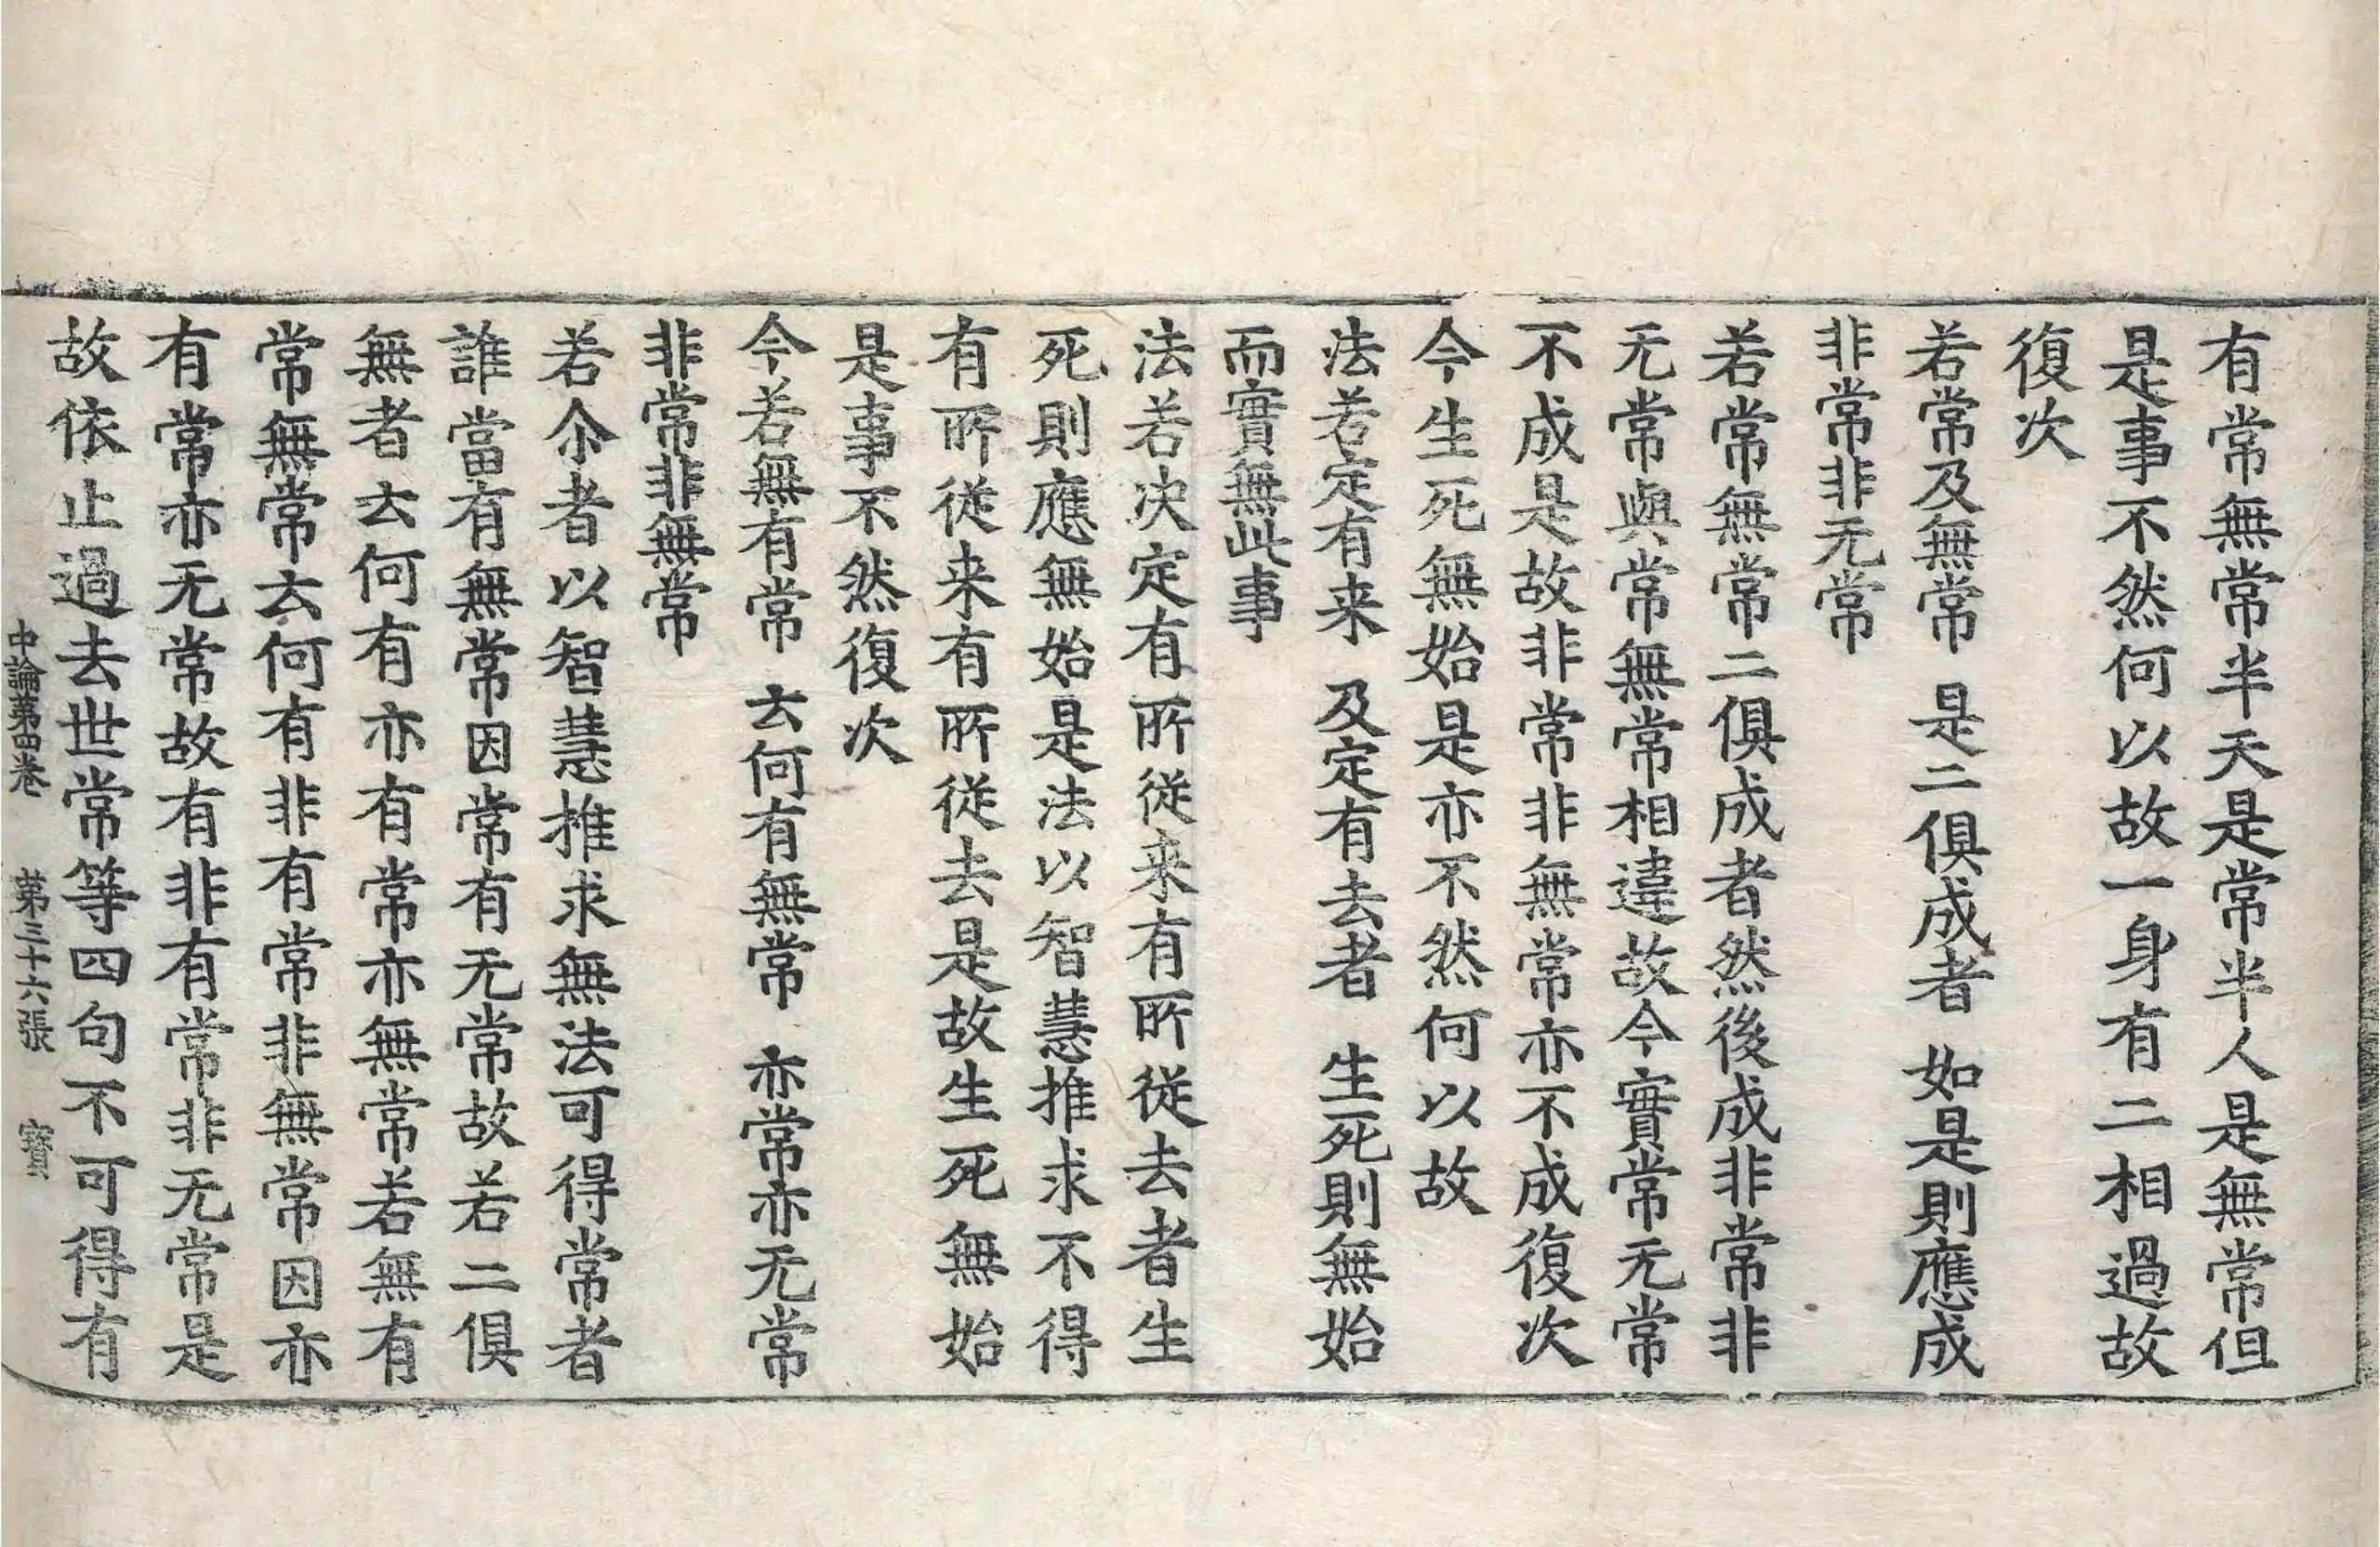 有常無常半天是常半人是無常但
是事不然何以故一身有二相過故
復次
若常及無常　是二俱成者　如是則應成
非常非无常
若常無常二俱成者然後成非常非
无常與常無常相違故今實常无常
不成是故非常非無常亦不成復次
今生死無始是亦不然何以故
法若定有来　及定有去者　生死則無始
而實無此事
法若决定有所從来有所從去者生
死則應無始是法以智慧推求不得
有所從来有所從去是故生死無始
是事不然復次
今若無有常　云何有無常　亦常亦无常
非常非無常
若尒者以智慧推求無法可得常者
誰當有無常因常有无常故若二俱
無者云何有亦有常亦無常若無有
常無常云何有非有常非無常因亦
有常亦无常故有非有常非无常是
故依止過去世常等四句不可得有
中論第四卷　第三十六張　寶